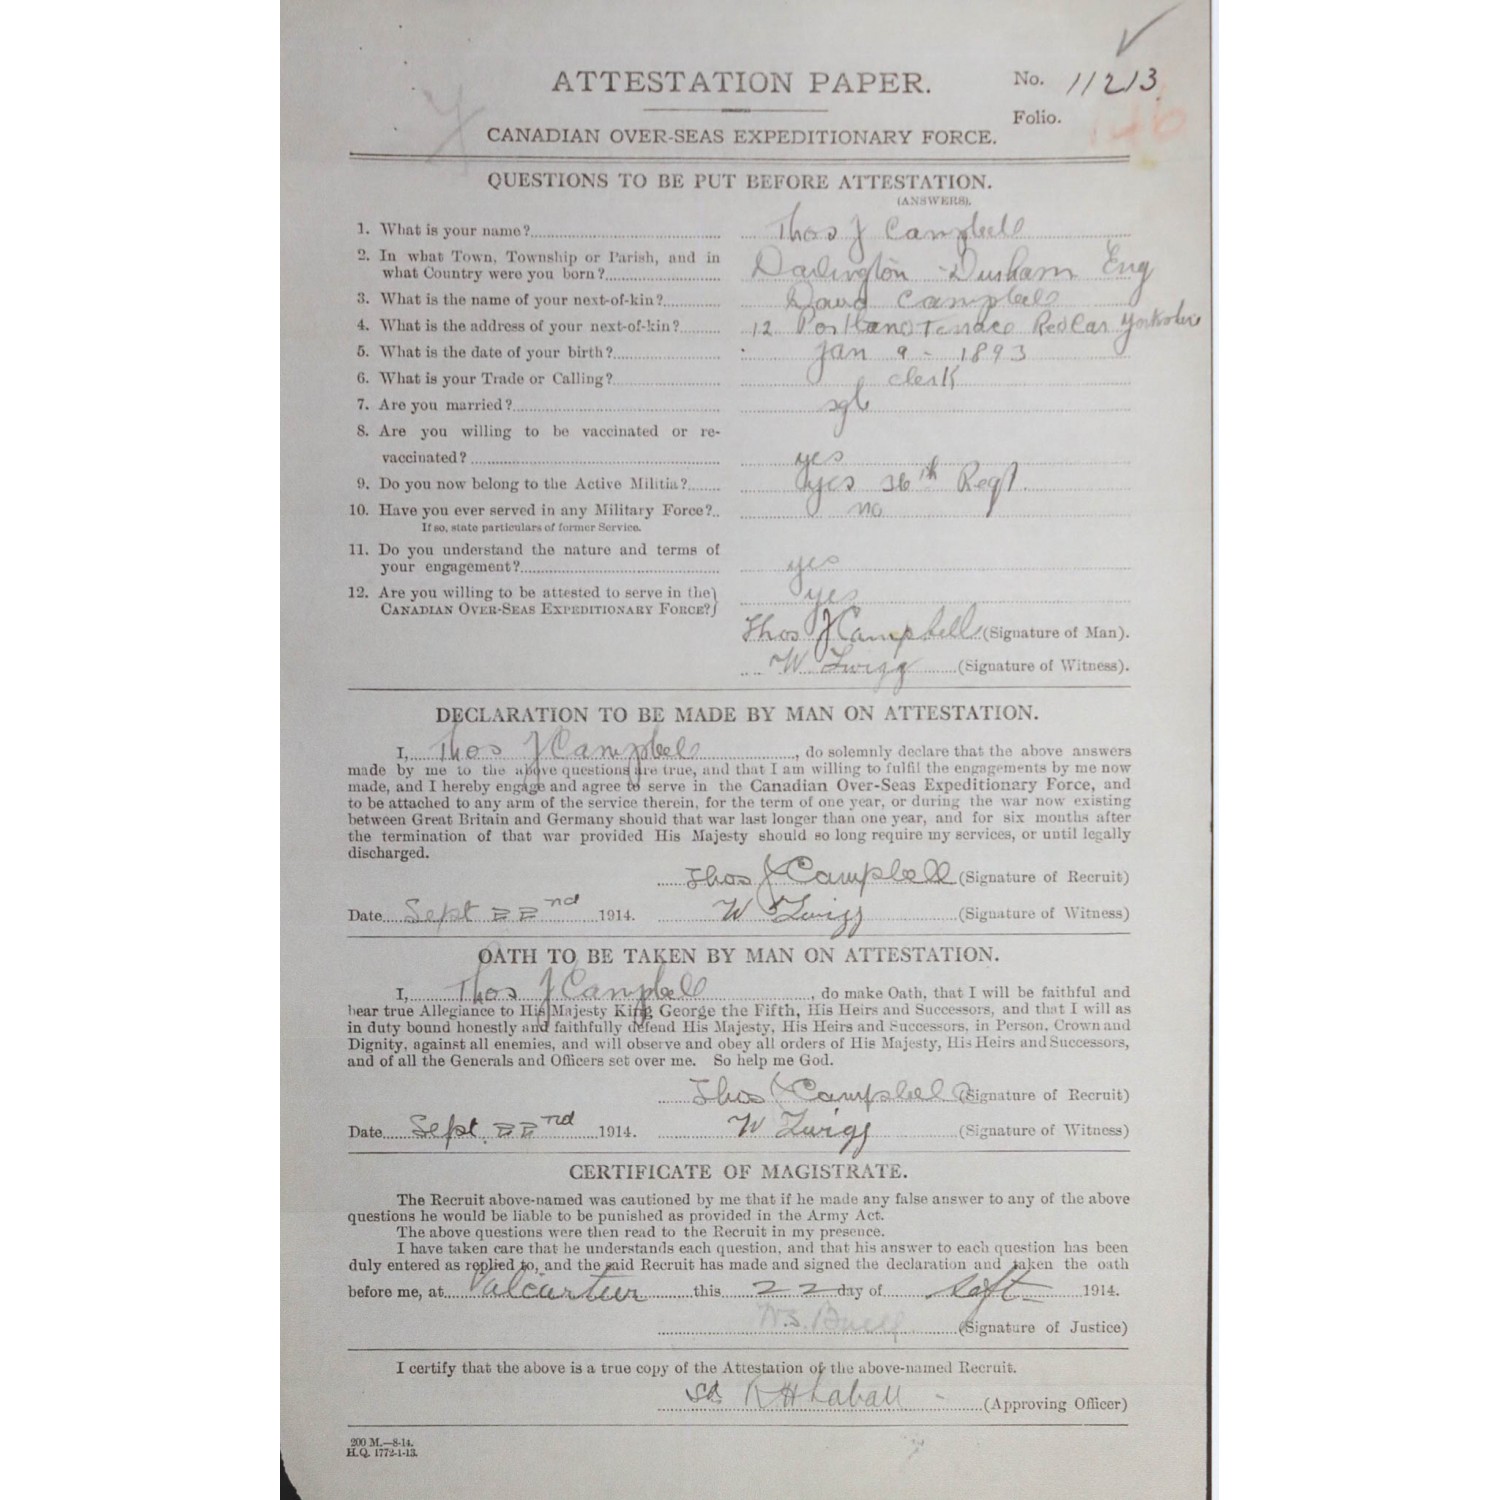 ATTESTATION PAPER.
No. 11213
Folio. 146
CANADIAN OVER-SEAS EXPEDITIONARY FORCE.
QUESTIONS TO BE PUT BEFORE ATTESTATION.
(ANSWERS).
1. What is your name? Thos J Campbell
2. In what Town, Township or Parish, and in
what Country were you born? Darlington - Durham Eng
3. What is the name of your next-of-kin? David Campbell
4. What is the address of your next-of-kin? 12 Portland Terrace Redcar Yorkshire
5. What is the date of your birth? Jan 9 - 1893
6. What is your Trade or Calling? clerk
7. Are you married? sgle
8. Are you willing to be vaccinated or re-
vaccinated? yes
9. Do you now belong to the Active Militia? yes 36th Regt
10. Have you ever served in any Military Force? no
If so, state particulars of former Service.
11. Do you understand the nature and terms of
your engagement? yes
12. Are you willing to be attested to serve in the
CANADIAN OVER-SEAS EXPEDITIONARY FORCE? yes
Thos J Campbell (Signature of Man).
W Twigg (Signature of Witness).
DECLARATION TO BE MADE BY MAN ON ATTESTATION.
I, Thos J Campbell, do solemnly declare that the above answers
made by me to the above questions are true, and that I am willing to fulfil the engagements by me now
made, and I hereby engage and agree to serve in the Canadian Over-Seas Expeditionary Force, and
to be attached to any arm of the service therein, for the term of one year, or during the war now existing
between Great Britain and Germany should that war last longer than one year, and for six months after
the termination of that war provided His Majesty should so long require my services, or until legally
discharged.
Thos J Campbell (Signature of Recruit)
Date Sept 22nd 1914. W Twigg (Signature of Witness)
OATH TO BE TAKEN BY MAN ON ATTESTATION.
I, Thos J Campbell, do make Oath, that I will be faithful and
bear true Allegiance to His Majesty King George the Fifth, His Heirs and Successors, and that I will as
in duty bound honestly and faithfully defend His Majesty, His Heirs and Successors, in Person, Crown and
Dignity, against all enemies, and will observe and obey all orders of His Majesty, His Heirs and Successors,
and of all the Generals and Officers set over me. So help me God.
Thos J Campbell (Signature of Recruit)
Date Sept. 22nd 1914. W Twigg (Signature of Witness)
CERTIFICATE OF MAGISTRATE.
The Recruit above-named was cautioned by me that if he made any false answer to any of the above
questions he would be liable to be punished as provided in the Army Act.
The above questions were then read to the Recruit in my presence.
I have taken care that he understands each question, and that his answer to each question has been
duly entered as replied to, and the said Recruit has made and signed the declaration and taken the oath
before me, at Valcartier this 22 day of Sept 1914.
W.S. Buell (Signature of Justice)
I certify that the above is a true copy of the Attestation of the above-named Recruit.
Sd (Approving Officer)
200 M.—8-14.
H.Q. 1772-1-13.